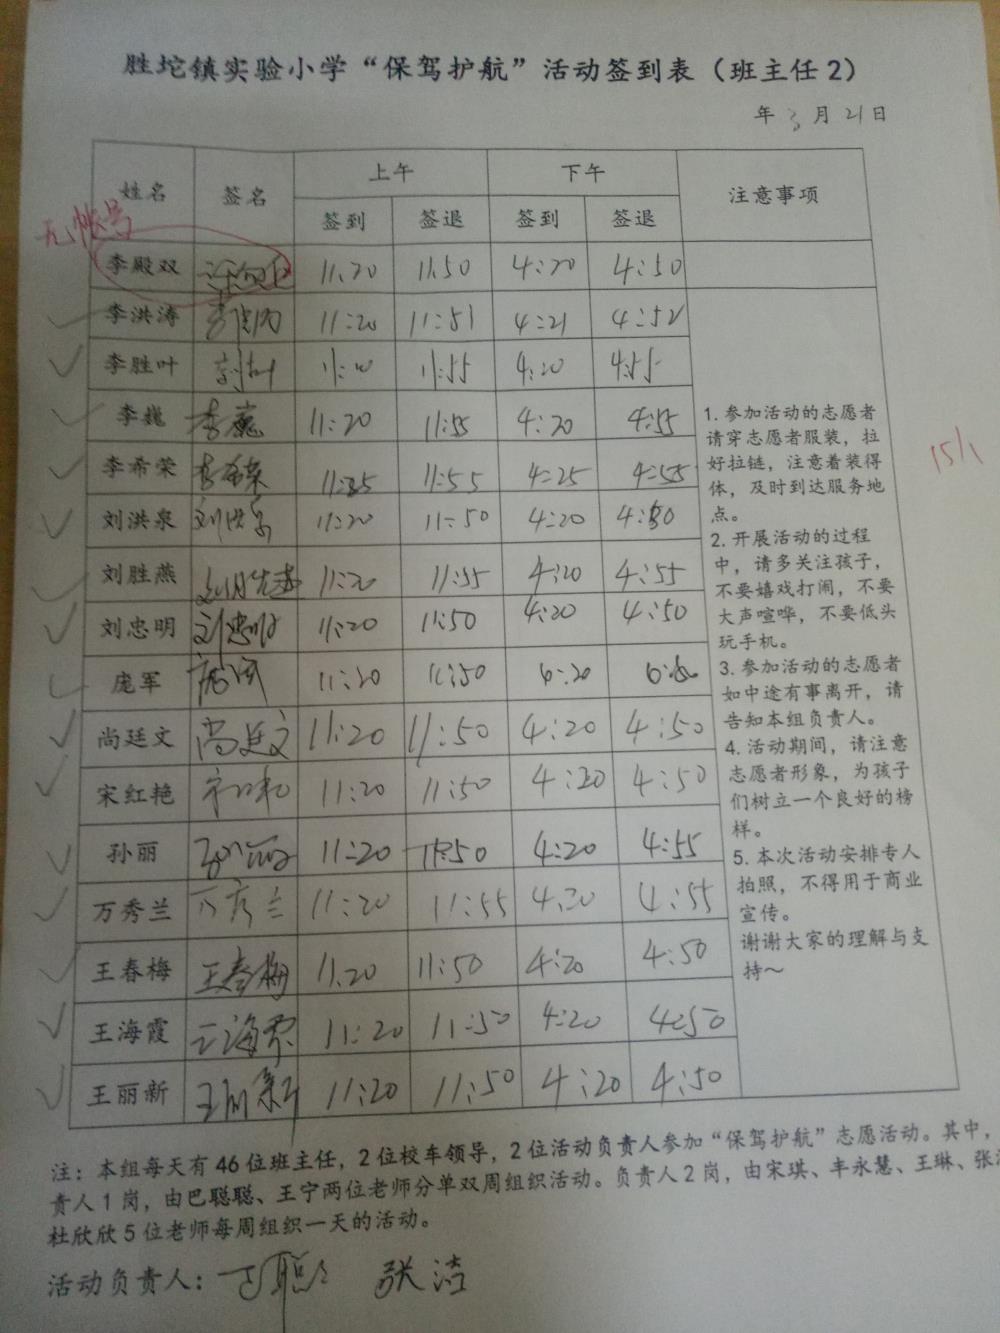 胜坨镇实验小学“保驾护航”活动签到表（班主任2）
年 3月 21日
姓名 签名 上午 下午 注意事项
签到 签退 签到 签退
无帐号
李殿双 11:20 11:50 4:20 4:50
李洪涛 11:20 11:51 4:21 4:52
李胜叶 11:20 11:55 4:20 4:55
李巍 李巍 11:20 11:55 4:20 4:55
李希荣 李希荣 11:25 11:55 4:25 4:55
刘洪泉 刘洪泉 11:20 11:50 4:20 4:50
刘胜燕 刘胜燕 11:20 11:55 4:20 4:55
刘忠明 刘忠明 11:20 11:50 4:20 4:50
庞军 11:20 11:50
尚廷文 尚廷文 11:20 11:50 4:20 4:50
宋红艳 11:20 11:50 4:20 4:50
孙丽 孙丽 11:20 11:50 4:20 4:55
万秀兰 万秀兰 11:20 11:55 4:20 4:55
王春梅 王春梅 11:20 11:50 4:20 4:50
王海霞 王海霞 11:20 11:50 4:20 4:50
王丽新 王丽新 11:20 11:50 4:20 4:50
1. 参加活动的志愿者
请穿志愿者服装，拉
好拉链，注意着装得
体，及时到达服务地
点。
2. 开展活动的过程
中，请多关注孩子，
不要嬉戏打闹，不要
大声喧哗，不要低头
玩手机。
3. 参加活动的志愿者
如中途有事离开，请
告知本组负责人。
4. 活动期间，请注意
志愿者形象，为孩子
们树立一个良好的榜
样。
5. 本次活动安排专人
拍照，不得用于商业
宣传。
谢谢大家的理解与支
持～
15/1
注：本组每天有46位班主任，2位校车领导，2位活动负责人参加“保驾护航”志愿活动。其中，
责人1岗，由巴聪聪、王宁两位老师分单双周组织活动。负责人2岗，由宋琪、丰永慧、王琳、张
杜欣欣5位老师每周组织一天的活动。
活动负责人： 张洁